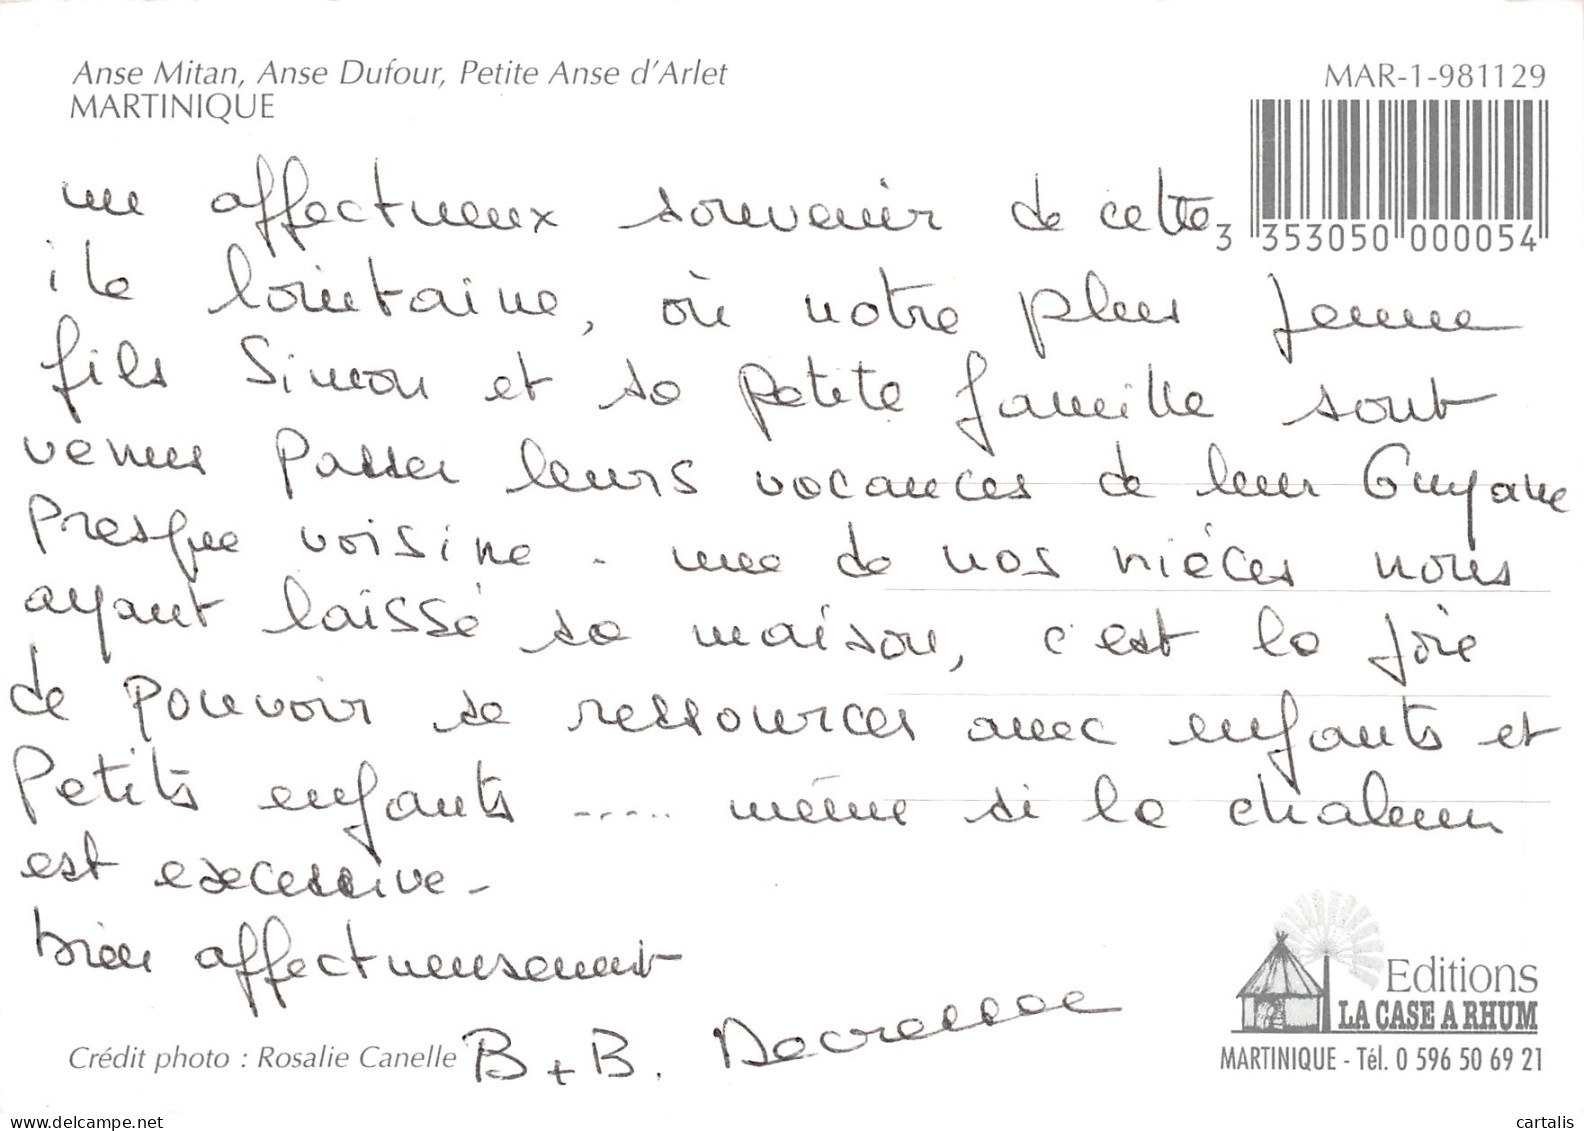 Anse Mitan, Anse Dufour, Petite Anse d'Arlet
MARTINIQUE
MAR-1-981129
3 353050 000054
un affectueux souvenir de cette
ile lointaine, où notre plus jeune
fils Simon et sa petite famille sont
venus passer leurs vacances de leur Guyane
presque voisine - une de nos nièces nous
ayant laissé sa maison, c'est la joie
de pouvoir se ressources avec enfants et
petits enfants ..... même si la chaleur
est excessive -
bien affectueusement
B + B.
Crédit photo : Rosalie Canelle
Editions
LA CASE A RHUM
MARTINIQUE - Tél. 0 596 50 69 21
delcampe.net
cartalis